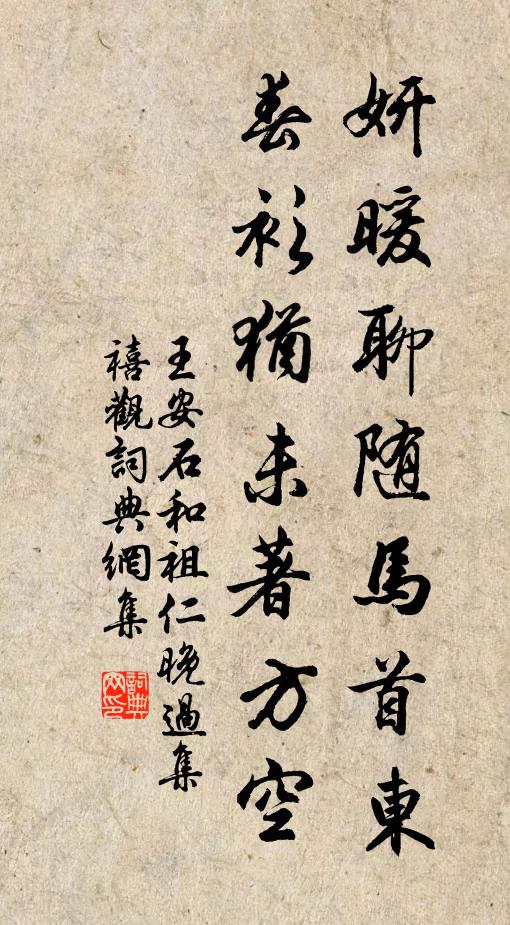 妍暖聊随馬首東
春衫猶未著方空
王安石和祖仁晚過集
禧觀詞典網集
詞典
网印